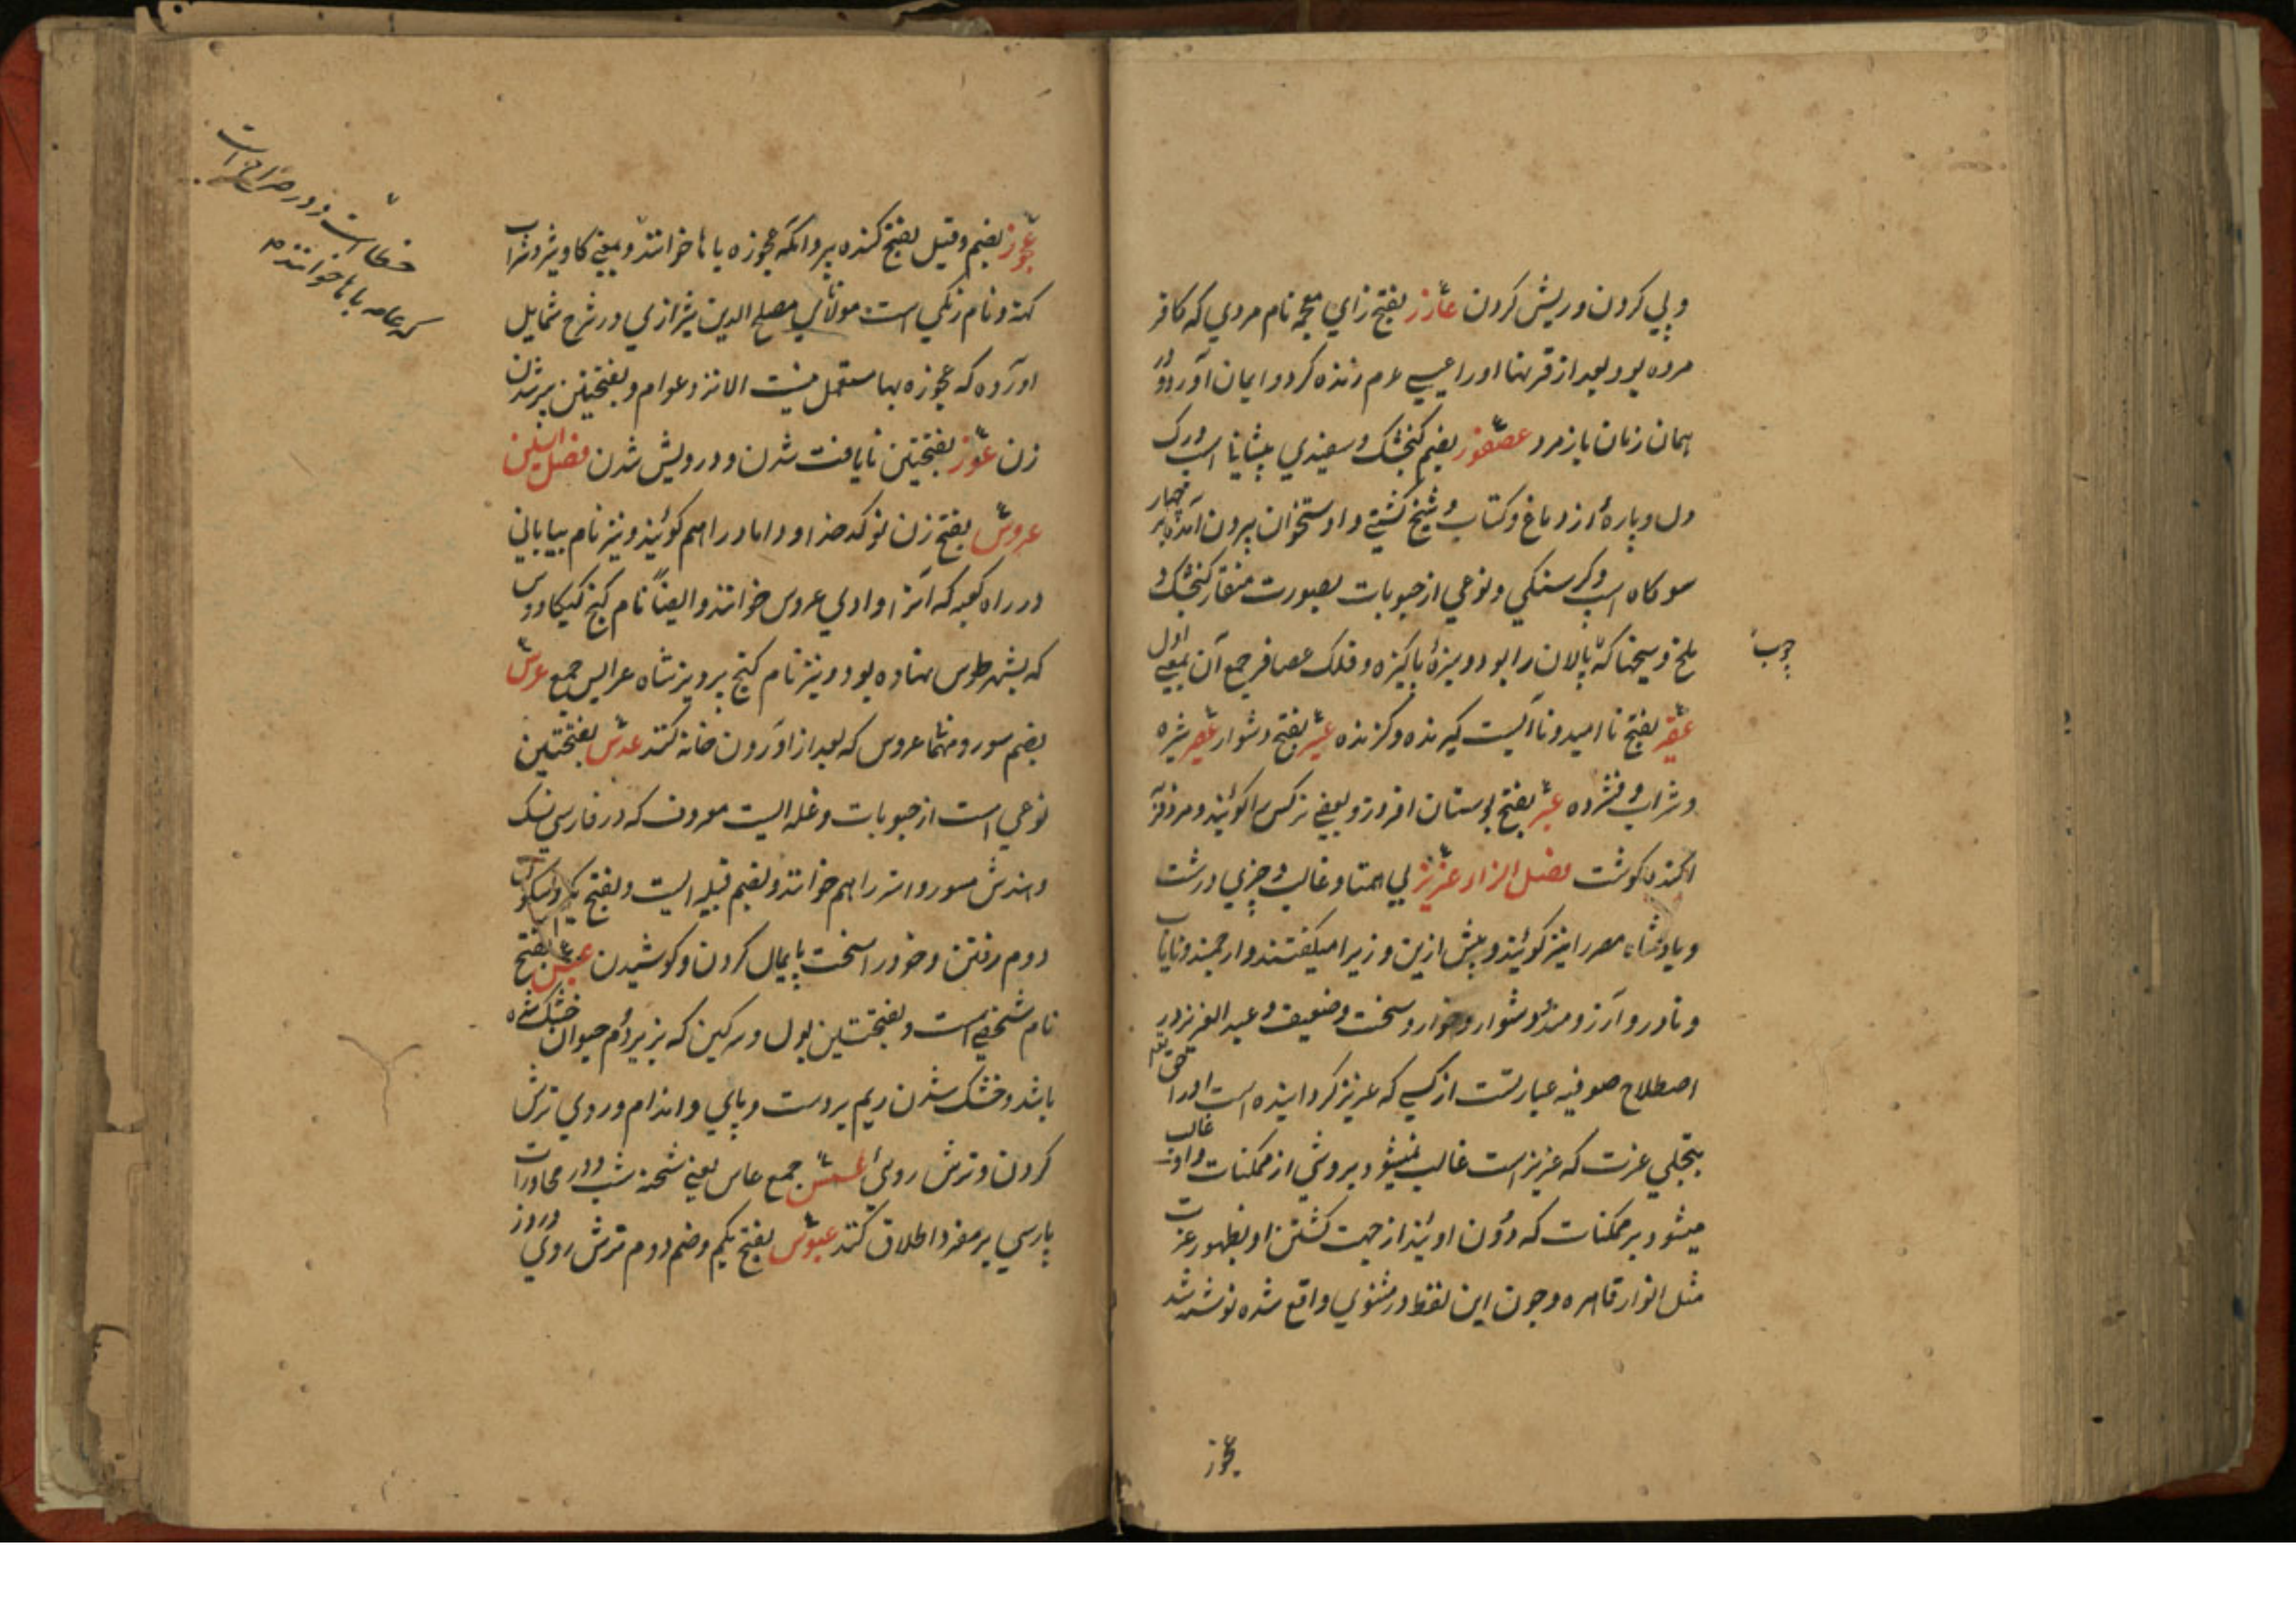 و پی کردن و ریش کردن عازر بفتح زای معجمه نام مردی که کافر
مرده بود بعد از قرنها اورا عیسی عم زنده کرد و ایمان آورد و در
همان زمان باز مرد عصفور بضم کنجشک و سفیدی پیشانی اسپ و رک
دل و پارهٔ از دماغ و کتاب و شیخ کشتی و استخوان بیرون آمده بر
سوکاه اسپ و کرسنکی و نوعی از حبوبات بصورت منقار کنجشک و
ملخ و میخها که پالان را بود و میزهٔ پاکیزه و فلک عصافر جمع آن بمعنی اول
چوب
عقر بفتح نا امید و نا آلیست کیرنده و کزنده عسیر بفتح دشوار عصیر شیره
و شراب و فشرده عبهر بفتح بوستان افروز و بعضی نرکس را کویند و مرد فربه
اکنده کوشت فصل الزاء عزیز بی همتا و غالب و چیزی درشت
و پادشاه مصر را نیز کویند و پیش ازین وزیر را میکفتند و ارجمند و نایاب
و نادر و آرزومند و دشوار و خوار و سخت و ضعیف و عبد العزیز در
اصطلاح صوفیه عبارتست از کسی که عزیز کردانیده است اورا حق تعالی
بتجلی عزت که عزیز است غالب نمیشود برو شی از ممکنات و او غالب
میشود بر ممکنات که دون اویند از جهت کشتن او بظهور عزت
مثل انوار قاهره و چون این لفظ در مثنوی واقع شده نوشته شد
عجوز
عجوز بضم و قیل بفتح کنده پیر و انکه عجوزه با ها خوانند و بمعنی کاو نیز و شراب
کهنه و نام زنکی است مولانای مصلح الدین شیرازی در شرح شمایل
اورده که عجوزه بها مستعمل نیست الا نزد عوام و بفتحتین پیر شدن
زن عوز بفتحتین نایافت شدن و درویش شدن فصل السین
عروس بفتح زن نو کدخدا و داماد را هم کویند و نیز نام بیابانی
در راه کعبه که آنرا وادی عروس خوانند و ایضاً نام کنج کیکاوس
که بشهر طوس نهاده بود و نیز نام کنج پرویز شاه عرایس جمع عرس
بضم سور و مهمانی عروس که بعد از آوردن خانه کنند عدس بفتحتین
نوعی است از حبوبات و غله ایست معروف که در فارسی نسک
و هندش مسور و انر را هم خوانند و بضم قبیله ایست و بفتح یکم و سکون
دوم رفتن و خود را سخت پایمال کردن و کوشیدن عبس بفتح
نام شخصی است و بفتحتین بول و سرکین که بزیر دم حیوان خشک شده
باشد و خشک شدن ریم بر دست و پای و اندام و روی ترش
کردن و ترش روی عسس جمع عاس یعنی شحنه شب و در محاورات
پارسی بر مفرد اطلاق کنند عبوس بفتح یکم و ضم دوم ترش روی و روز
خطا است و در صراح است
که عامه با ها خوانند